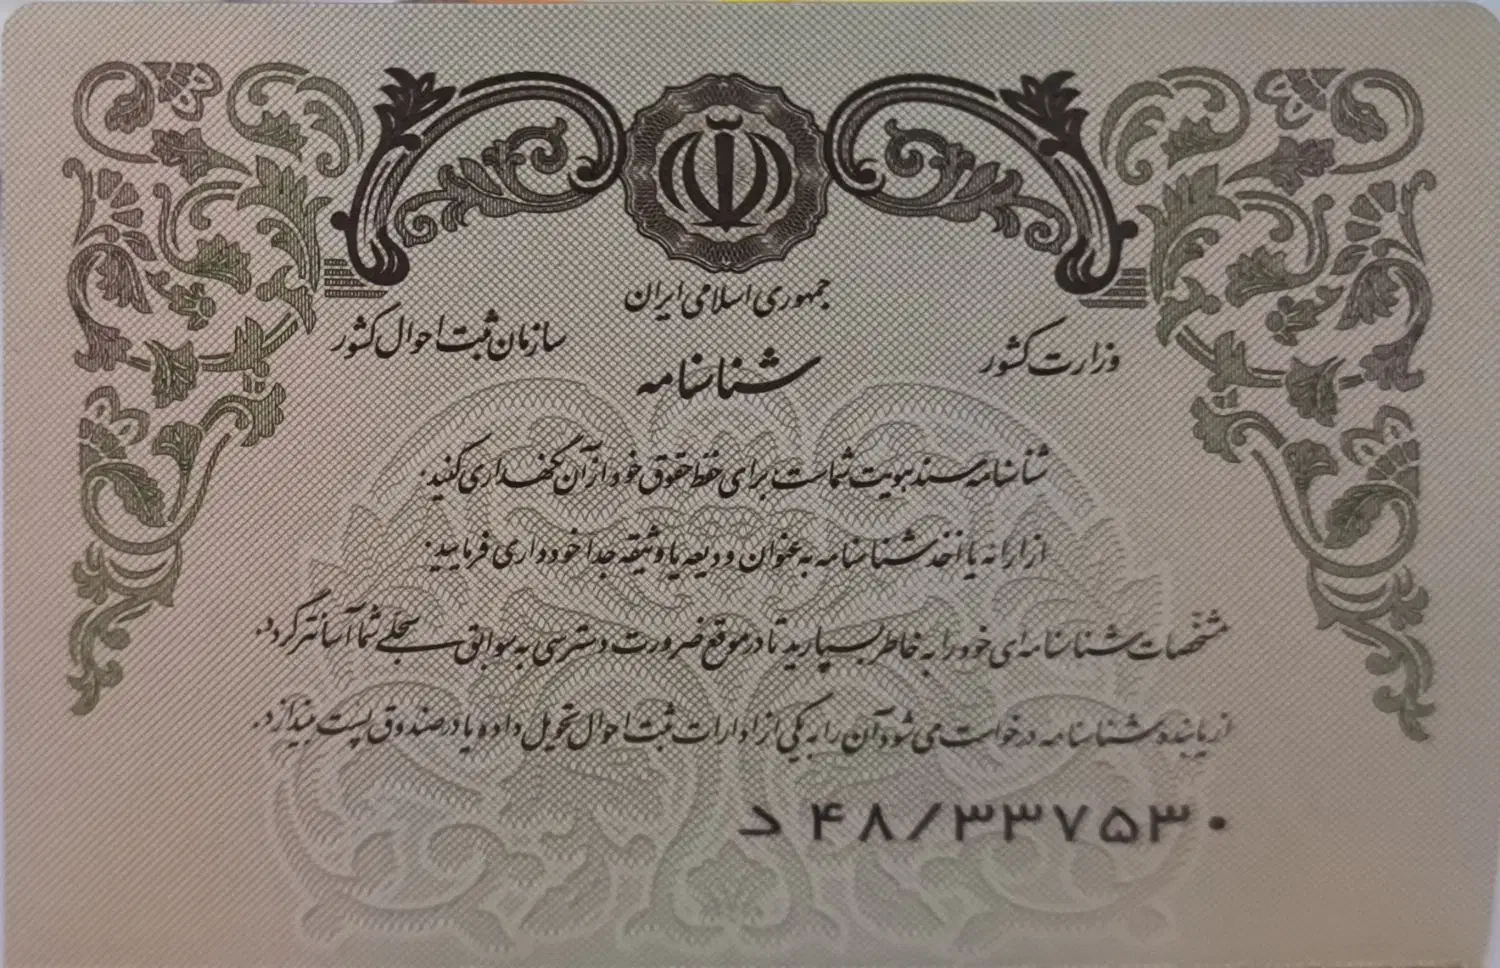 جمهوری اسلامی ایران
وزارت کشور
سازمان ثبت احوال کشور
شناسنامه
شناسنامه سند هویت شماست، برای حفظ حقوق خود از آن نگهداری کنید.
از ارائه یا اخذ شناسنامه به عنوان ودیعه یا وثیقه جداً خودداری فرمایید.
مشخصات شناسنامه‌ای خود را به خاطر بسپارید تا در موقع ضرورت دسترسی به سوابق سجلی شما آسانتر گردد.
از یابنده شناسنامه درخواست می‌شود آن را به یکی از ادارات ثبت احوال تحویل داده یا در صندوق پست بیندازد.
د ۴۸/۳۳۷۵۳۰